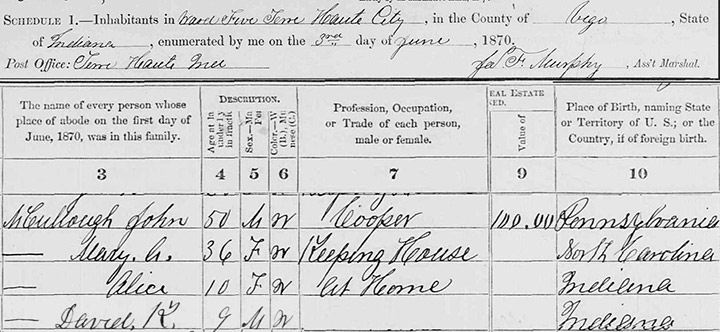 SCHEDULE 1.—Inhabitants in Ward Five Terre Haute City, in the County of Vigo, State
of Indiana, enumerated by me on the 3rd day of June, 1870.
Post Office: Terre Haute Ind Ja F. Murphy, Ass't Marshal.
The name of every person whose place of abode on the first day of June, 1870, was in this family.
DESCRIPTION.
Age at la
under 1 y
in fractio
Sex.—Ma
Fe
Color.—W
(B.), Mu
nese (C.)
Profession, Occupation, or Trade of each person, male or female.
EAL ESTATE
ED.
Value of
Place of Birth, naming State or Territory of U. S.; or the Country, if of foreign birth.
3 4 5 6 7 9 10
McCullough John 50 M W Cooper 100.00 Pennsylvania
— Mary. A. 36 F W Keeping House North Carolina
— Alice 10 F W At Home Indiana
— David, K. 9 M W Indiana